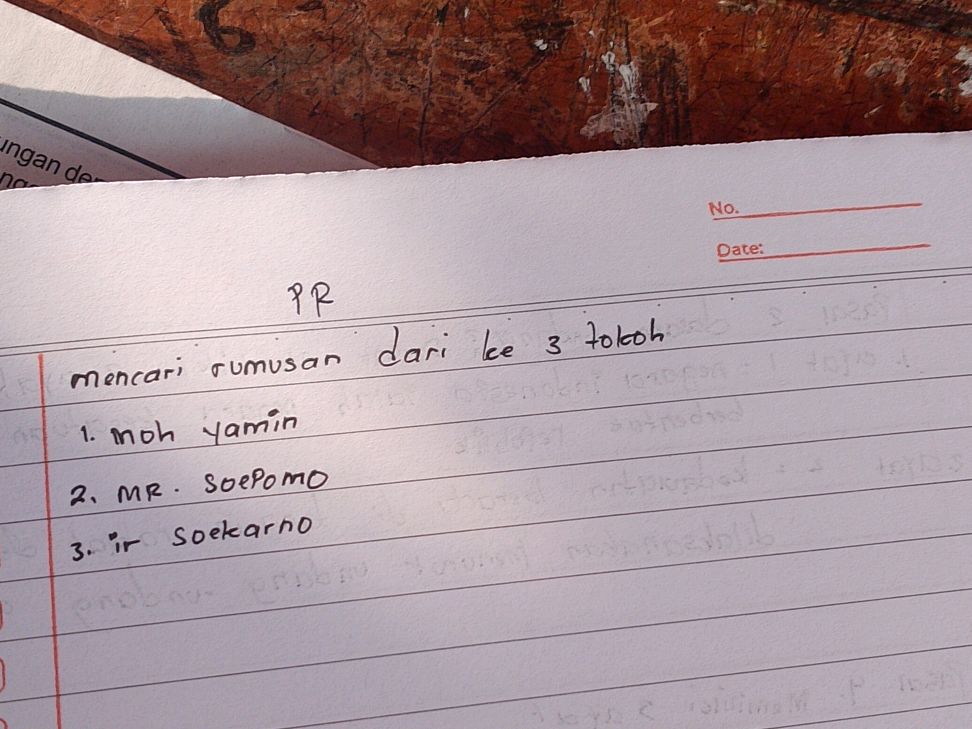 ungan de
No.
Date:
PR
mencari rumusan dari ke 3 tokoh
1. Moh Yamin
2. MR. SOEPOMO
3. ir Soekarno